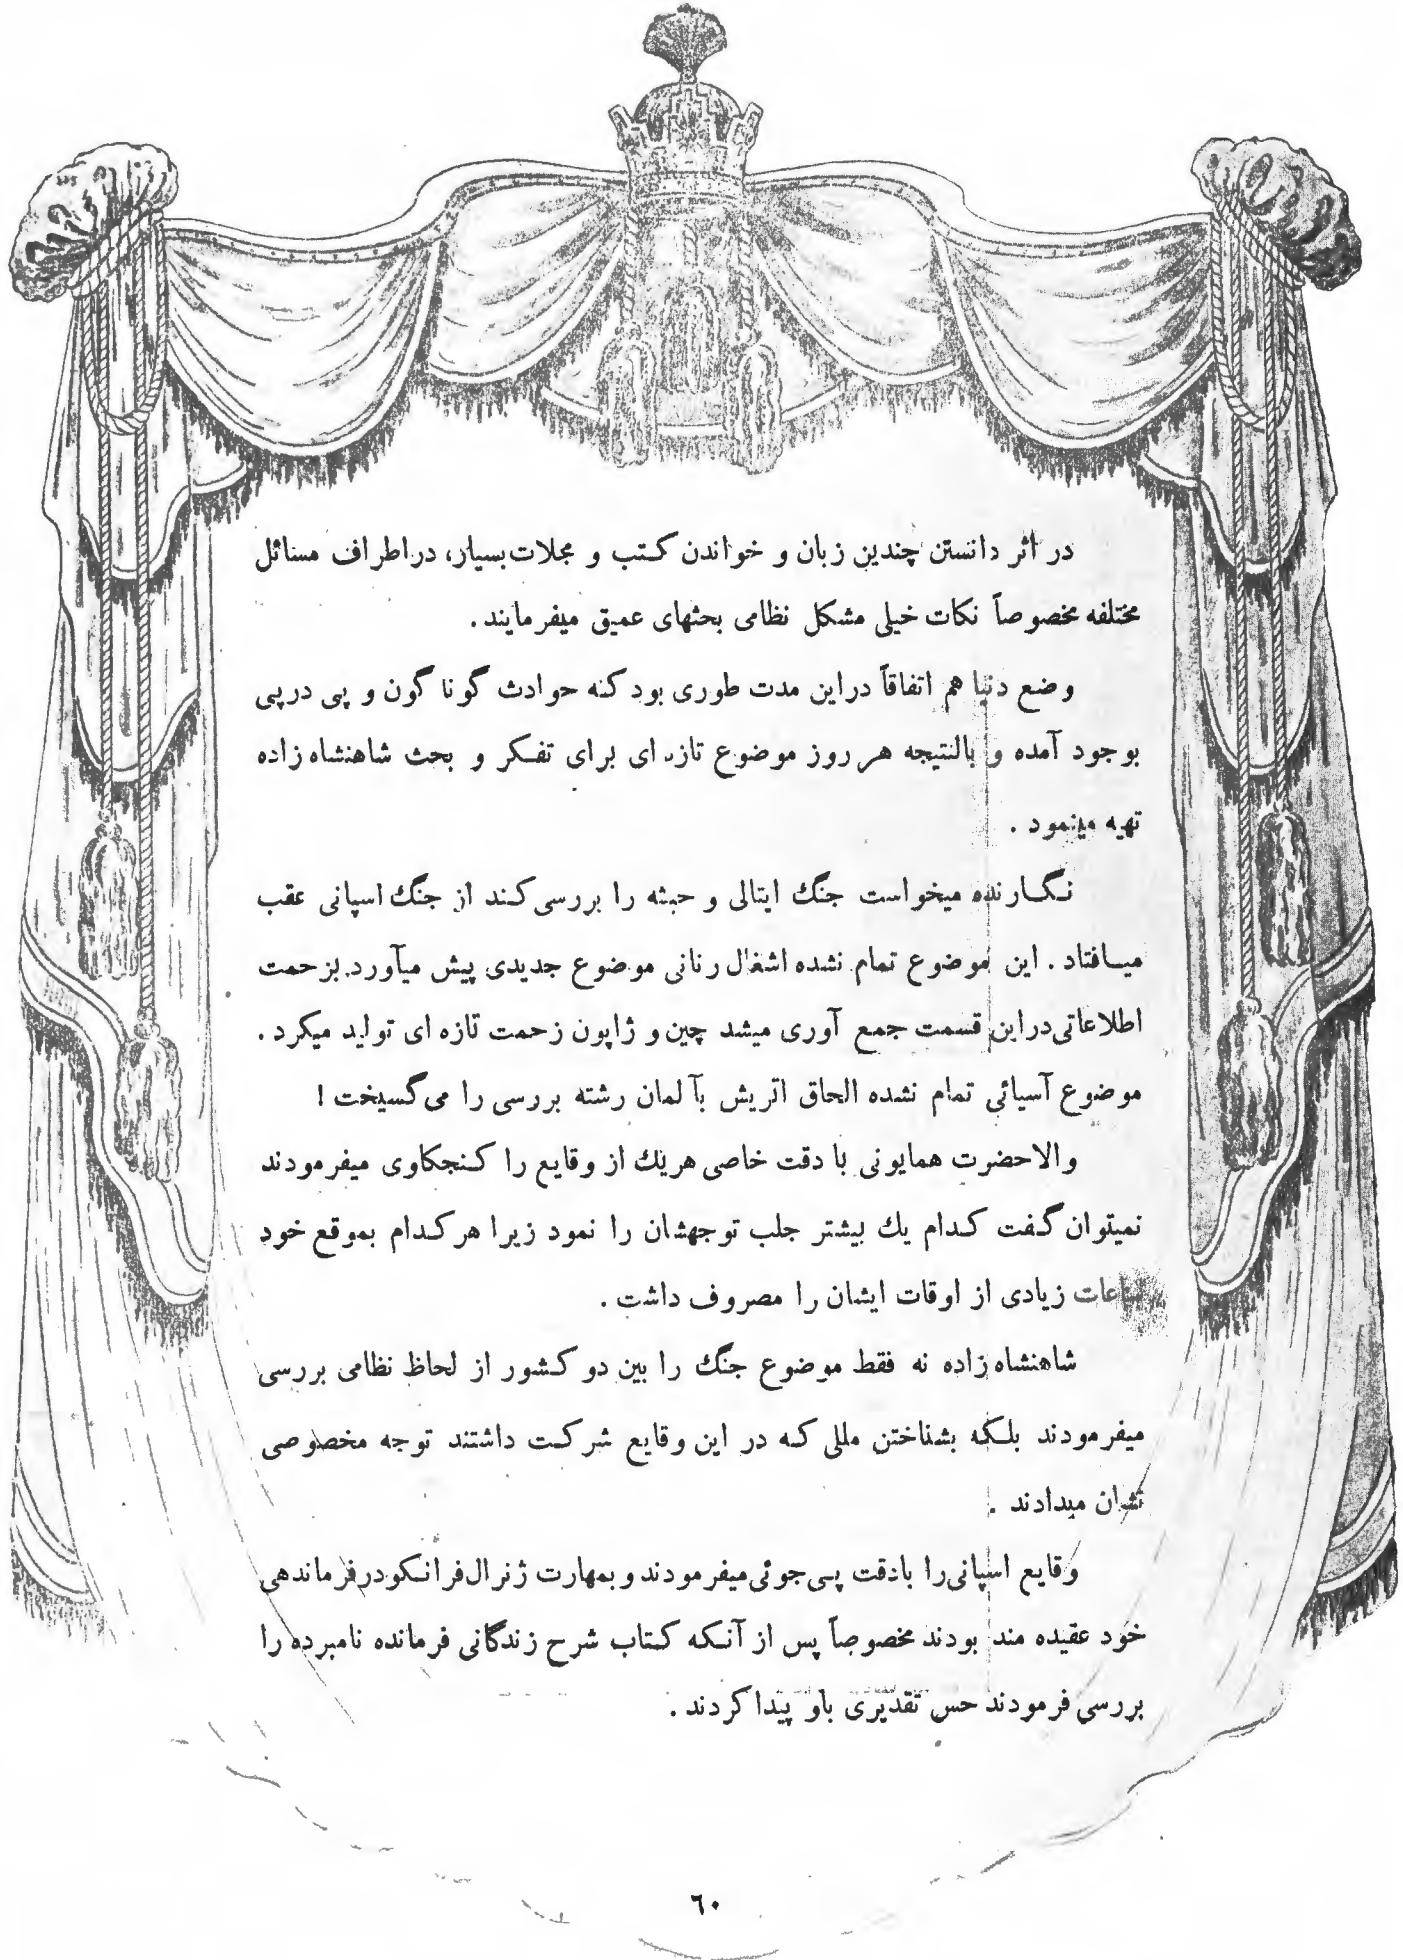 در اثر دانستن چندین زبان و خواندن کتب و مجلات بسیار، در اطراف مسائل
مختلفه مخصوصاً نکات خیلی مشکل نظامی بحثهای عمیق میفرمایند .
وضع دنیا هم اتفاقاً در این مدت طوری بود که حوادث گوناگون و پی درپی
بوجود آمده و بالنتیجه هر روز موضوع تازه ای برای تفکر و بحث شاهنشاه زاده
تهیه مینمود .
نگارنده میخواست جنگ ایتالی و حبشه را بررسی کند از جنگ اسپانی عقب
میافتاد . این موضوع تمام نشده اشغال رنانی موضوع جدیدی پیش میآورد. بزحمت
اطلاعاتی در این قسمت جمع آوری میشد چین و ژاپون زحمت تازه ای تولید میکرد .
موضوع آسیائی تمام نشده الحاق اتریش بآلمان رشته بررسی را می گسیخت !
والاحضرت همایونی با دقت خاصی هریک از وقایع را کنجکاوی میفرمودند
نمیتوان گفت کدام یک بیشتر جلب توجهشان را نمود زیرا هر کدام بموقع خود
ساعات زیادی از اوقات ایشان را مصروف داشت .
شاهنشاه زاده نه فقط موضوع جنگ را بین دو کشور از لحاظ نظامی بررسی
میفرمودند بلکه بشناختن مللی که در این وقایع شرکت داشتند توجه مخصوصی
نشان میدادند .
وقایع اسپانی را بادقت پی جوئی میفرمودند و بمهارت ژنرال فرانکو در فرماندهی
خود عقیده مند بودند مخصوصاً پس از آنکه کتاب شرح زندگانی فرمانده نامبرده را
بررسی فرمودند حس تقدیری باو پیدا کردند .
٦٠